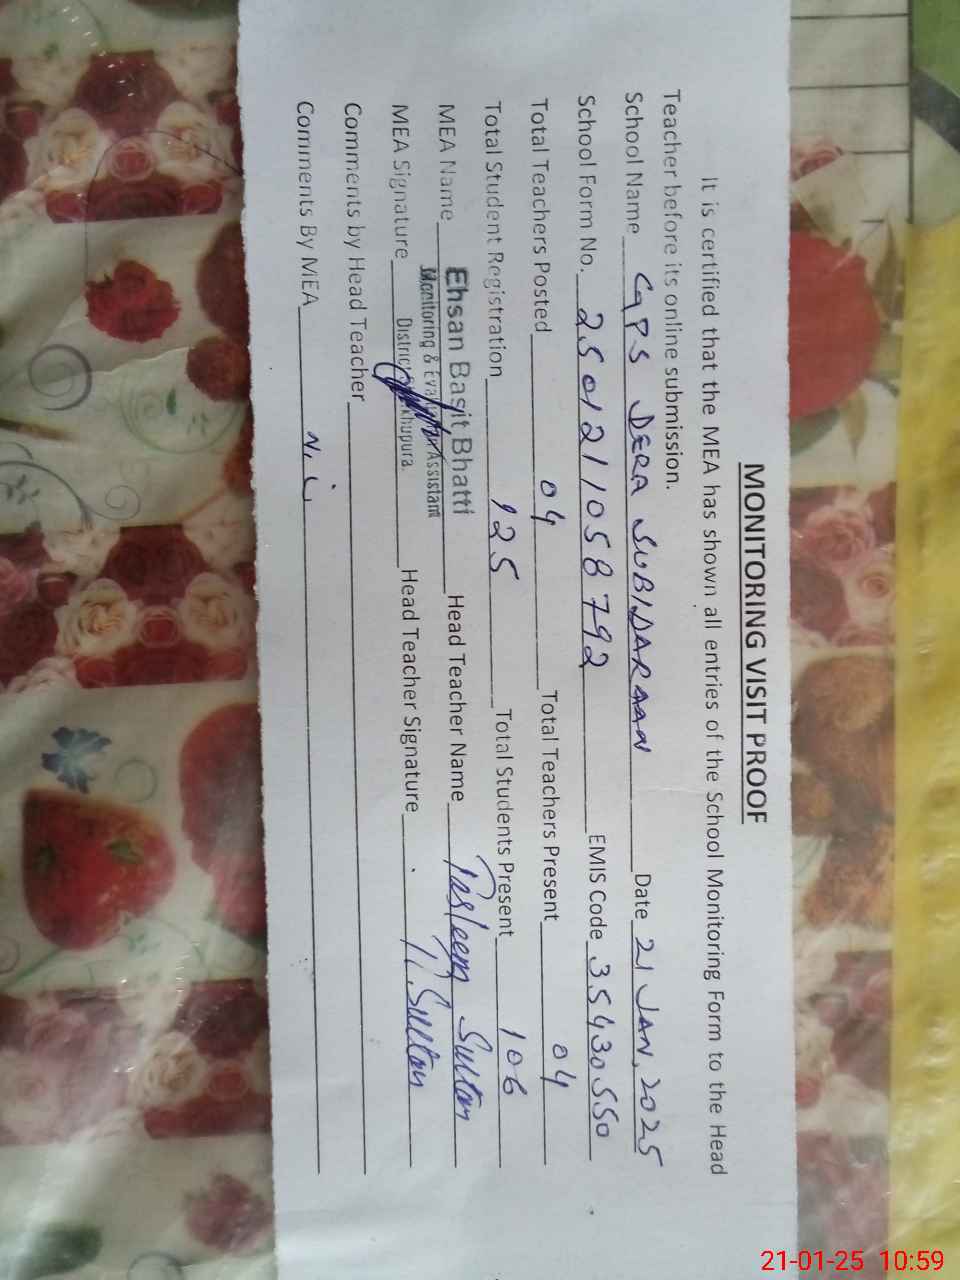 MONITORING VISIT PROOF
It is certified that the MEA has shown all entries of the School Monitoring Form to the Head
Teacher before its online submission.
School Name GPS DERA SUBIDARAAN Date 21 JAN, 2025
School Form No. 2501211058792 EMIS Code 35430550
Total Teachers Posted 04 Total Teachers Present 04
Total Student Registration 125 Total Students Present 106
MEA Name Ehsan Basit Bhatti Head Teacher Name Tasleem Sultan
Monitoring & Eva Assistant
MEA Signature District khupura. Head Teacher Signature T. Sultan
Comments by Head Teacher
Comments By MEA N.i.L
21-01-25 10:59